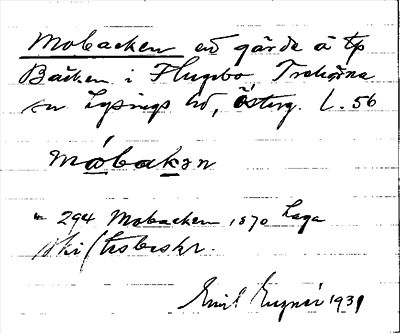 Mobacken en gärde å tp
Bäcken i Flugebo, Trehörna
sn Lysings hd, Österg. L. 56
måbakən
294 Mobacken 1870 Laga
skiftesbeskr.
Emil 1931